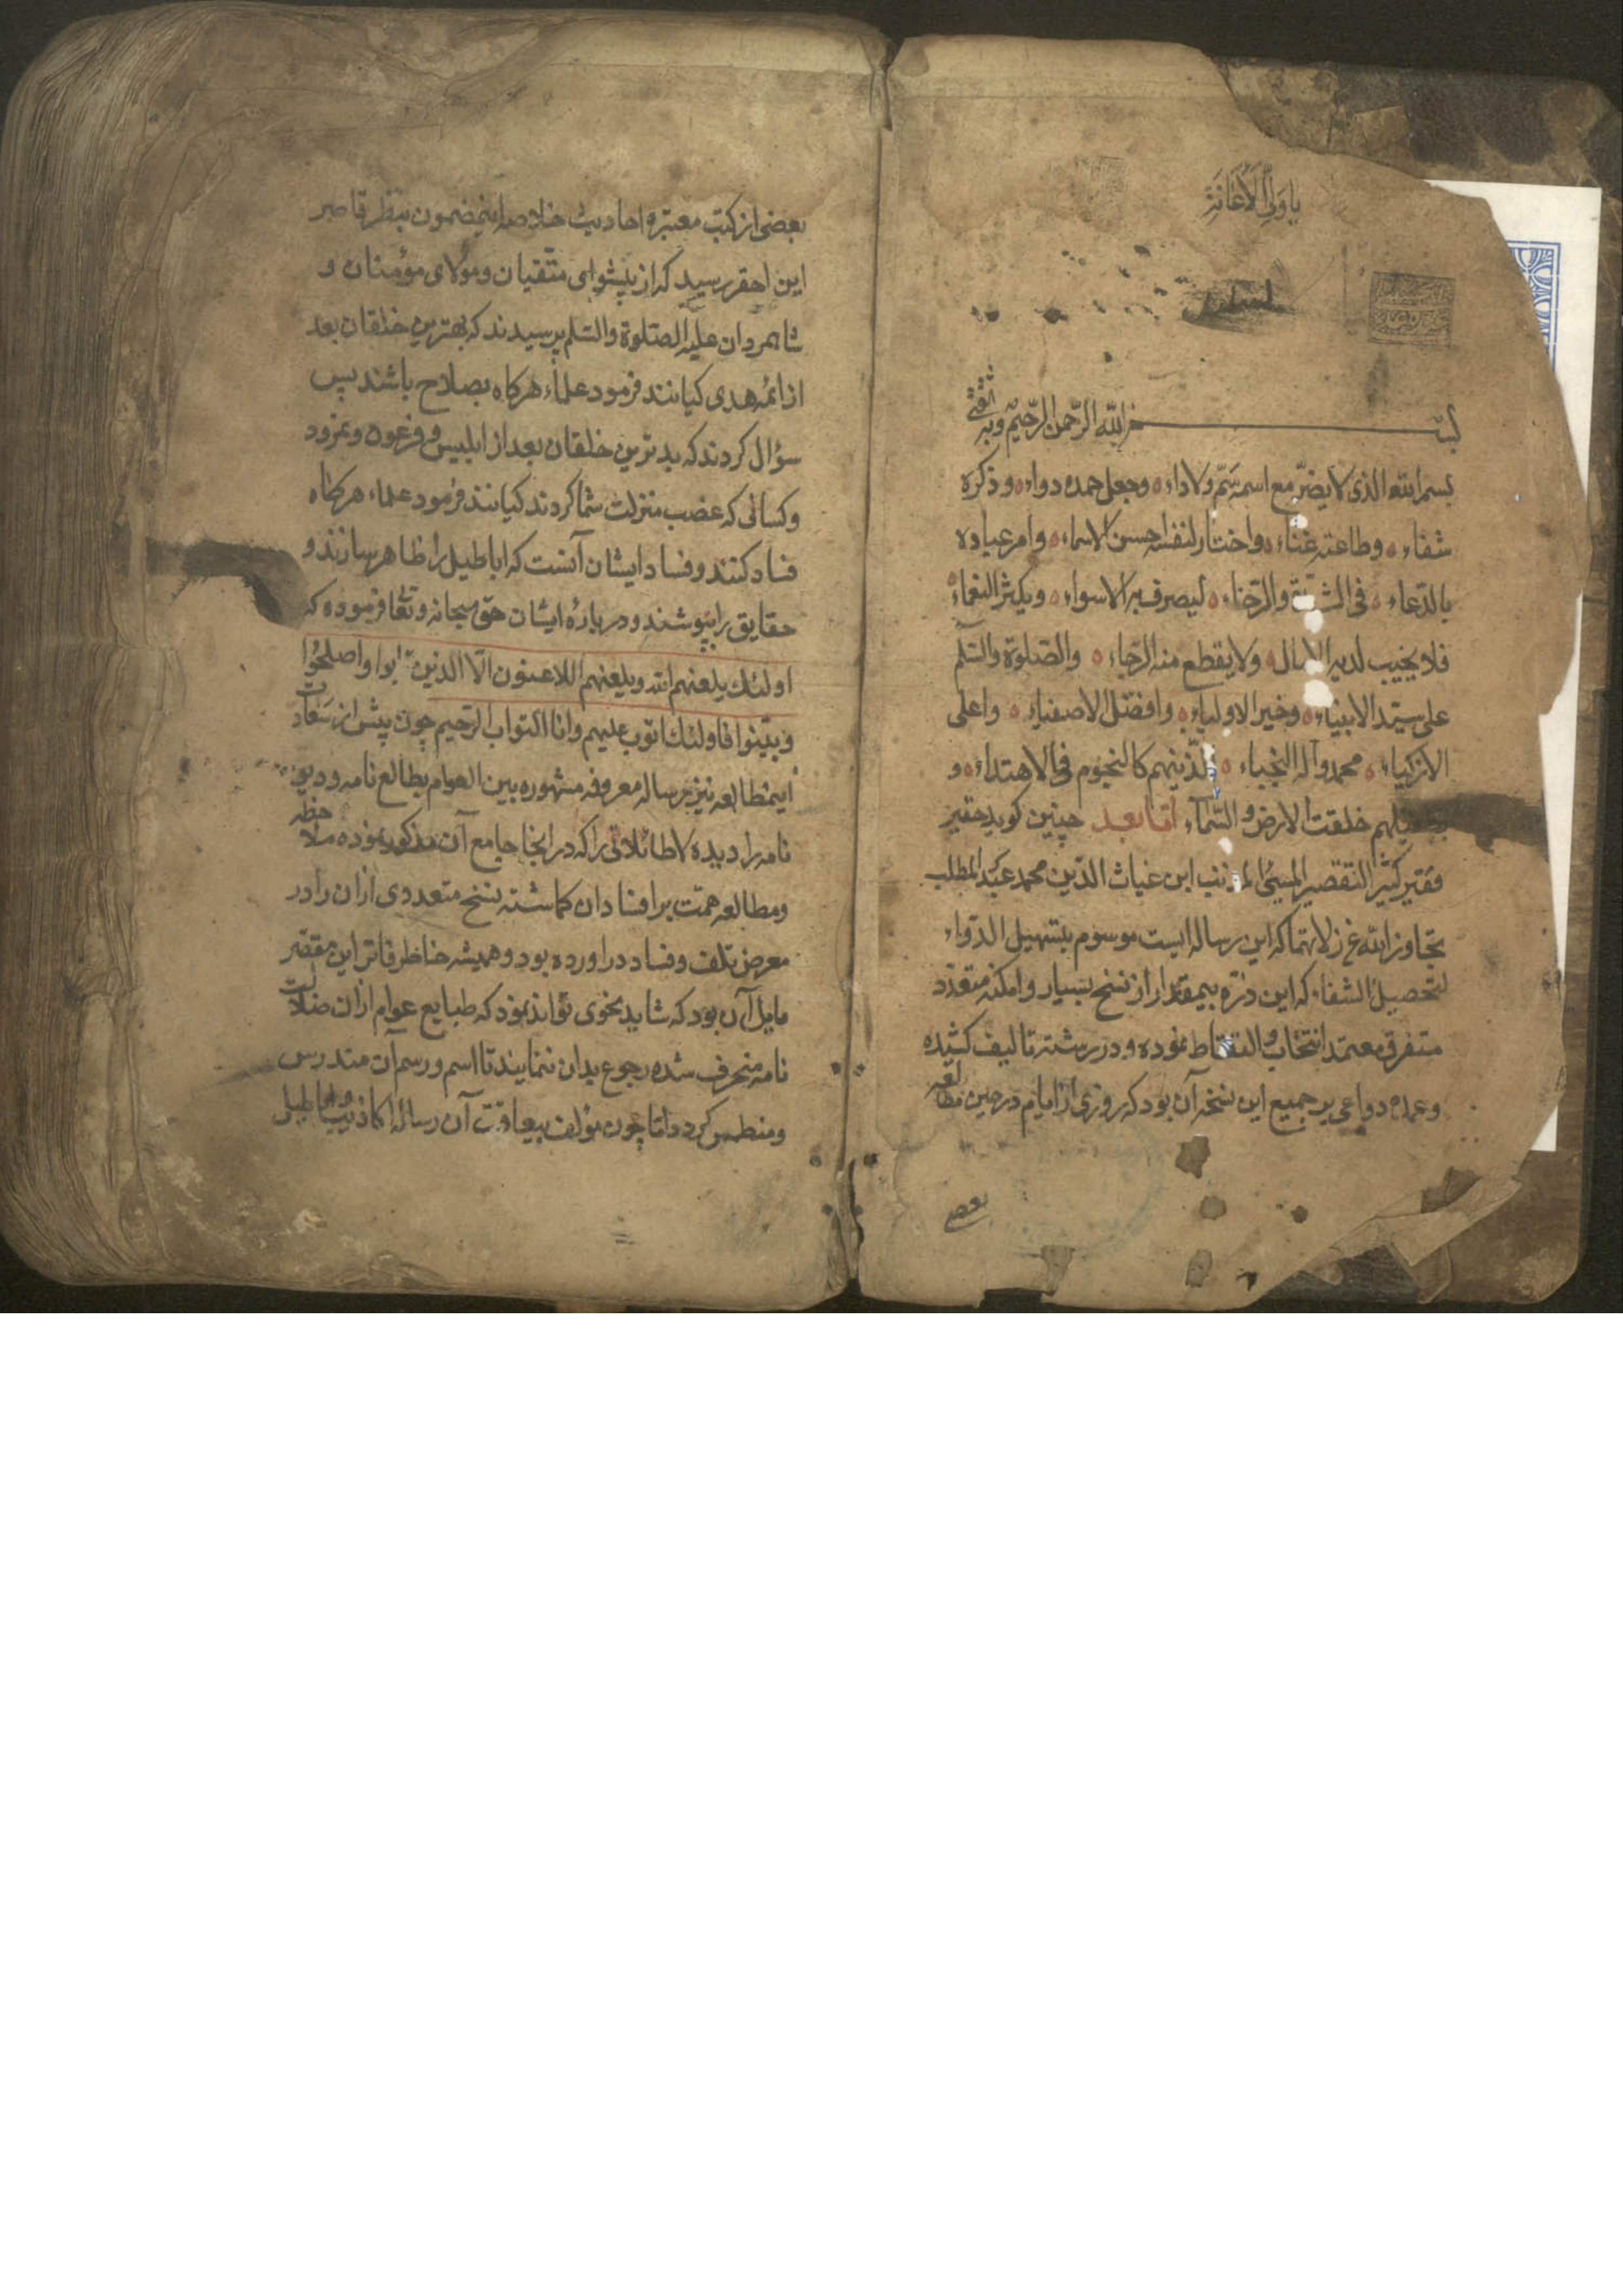 یا ولی الاغاثة
بسم الله الرحمن الرحیم وبه ثقتی
بسم الله الذی لا یضرّ مع اسمه سَمّ ولاداء وجعل حمده دواء وذکره
شفاء وطاعته غناء واختار لنفسه احسن الاسماء وامر عباده
بالدّعاء فی الشدّة والرّخاء لیصرف به الاسواء ویکثر النعماء
فلا یخیب لدیه الامال ولا یقطع منه الرّجاء والصّلوة والسّلم
علی سیّد الانبیاء وخیر الاولیاء وافضل الاصفیاء واعلی
الازکیاء محمد وآله النجباء الّذینهم کالنجوم فی الاهتداء و
بطفیلهم خلقت الارض والسّماء امّا بعد چنین کوید حقیر
فقیر کثیر التقصیر المسیء المذنب ابن غیاث الدّین محمد عبد المطلب
تجاوز الله عن زلاتهما که این رساله ایست موسوم بتسهیل الدّواء
لتحصیل الشفاء که این ذرّه بیمقدار از نسخ بسیار و امکنه متعدّد
متفرق معتمد انتخاب والتقاط نموده و در رشته تالیف کشیده
وعمده دواعی بر جمیع این نسخه آن بود که روزی از ایام در حین مطالعه
بعضی
بعضی از کتب معتبره احادیث خلاصه اینمضمون بنظر قاصر
این احقر رسید که از پیشوای متّقیان ومولای مؤمنان و
شاه مردان علیه الصّلوة والسّلم پرسیدند که بهترین خلقان بعد
از ائمه هدی کیانند فرمود علماء هرکاه بصلاح باشند پس
سؤال کردند که بدترین خلقان بعد از ابلیس وفرعون ونمرود
وکسانی که غصب منزلت شما کردند کیانند فرمود علماء هرکاه
فساد کنند وفساد ایشان آنست که اباطیل را ظاهر سازند و
حقایق را بپوشند و درباره ایشان حق سبحانه وتعا فرموده که
اولئک یلعنهم الله ویلعنهم اللاعنون الّا الذین تابوا واصلحوا
وبیّنوا فاولئک اتوب علیهم وانا التواب الرحیم چون پیش از سعادت
اینمطالعه نیز رساله معروفه مشهوره بین العوام بطالع نامه و دیو
نامه را دیده لاطائلاتی را که در انجا جامع آن مذکور نموده ملاحظه
ومطالعه همت بر افساد ان کماشته نسخ متعددی از ان را در
معرض تلف وفساد در اورده بود وهمیشه خاطر فاتر این مقصّر
مایل آن بود که شاید بنحوی تواند نمود که طبایع عوام از ان ضلالت
نامه منحرف شده رجوع بدان ننمایند تا اسم ورسم آن مندرس
ومنطمس کردد اما چون مؤلف بیعاقبت آن رساله اکاذیب واباطیل